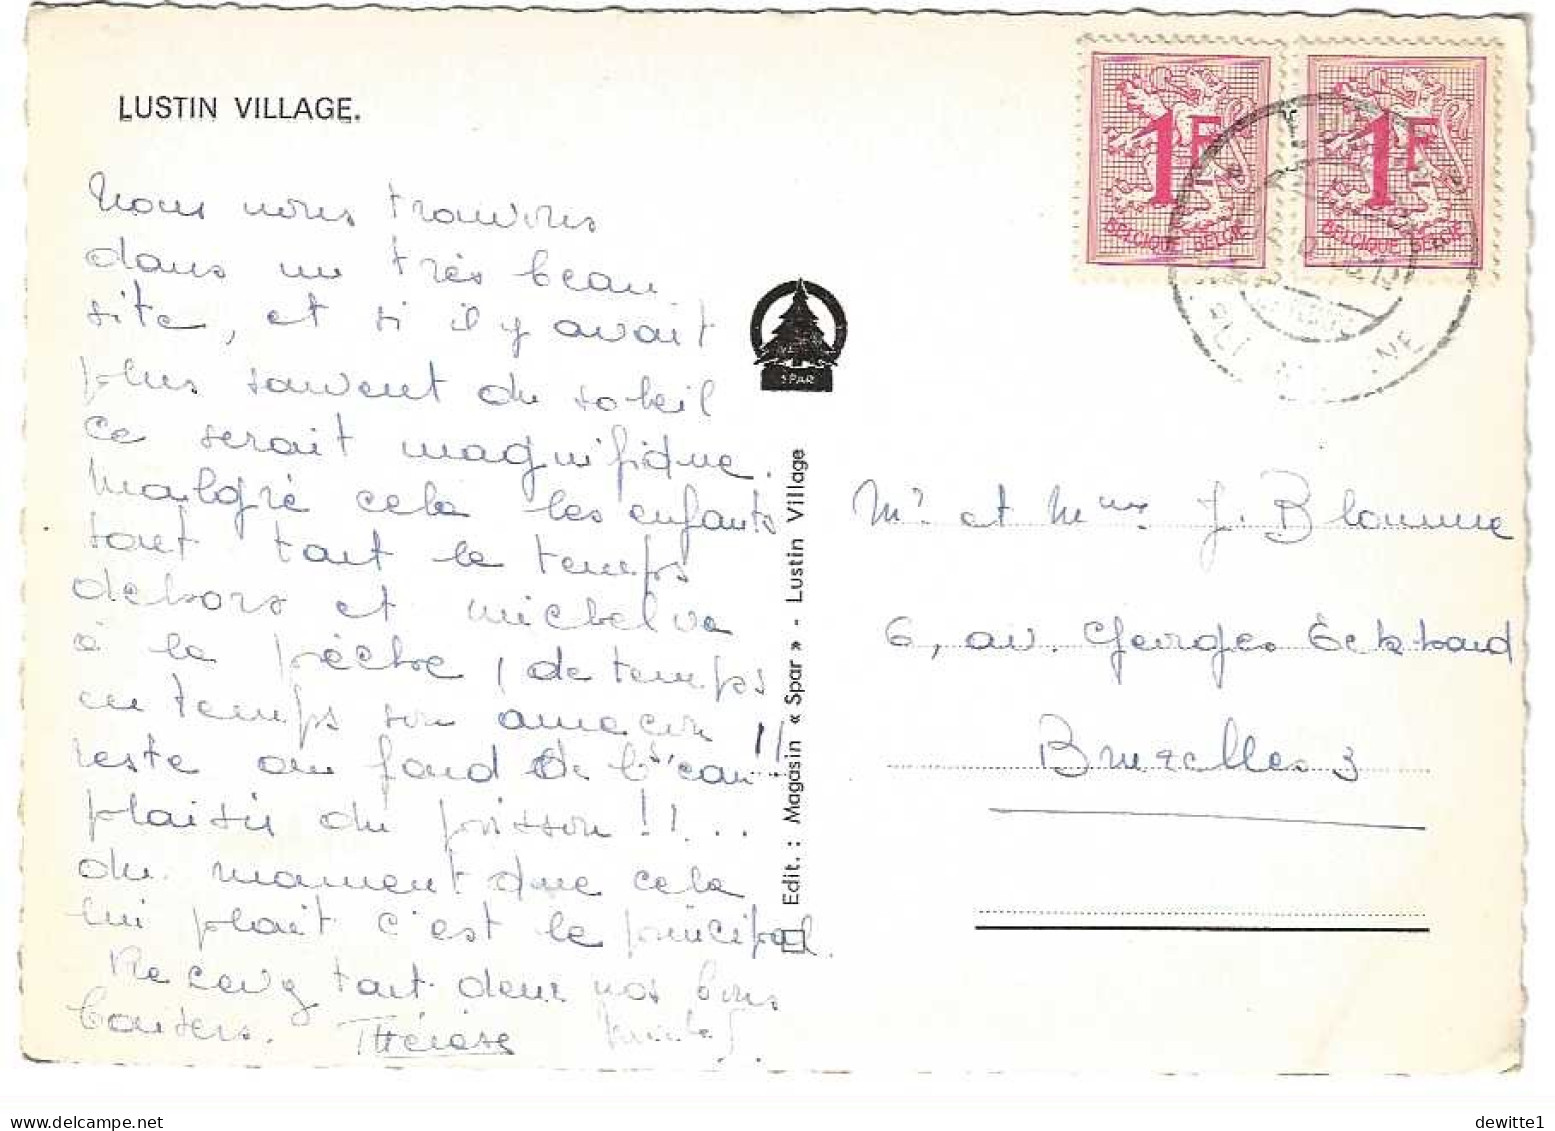 LUSTIN VILLAGE.
Nous nous trouvons
dans un très beau
site, et si il y avait
plus souvent du soleil
ce serait magnifique.
Malgré cela les enfants
sont tout le temps
dehors et Michel va
à la pêche, de temps
en temps son ameçon
reste au fond de l'eau !!
plaisir du poisson !!...
du moment que cela
lui plaît c'est le principal.
Recevez tout deux nos bons
baisers. Thérèse
SPAR
Edit. : Magasin « Spar » - Lustin Village
1F
BELGIQUE BELGIE
1F
BELGIQUE BELGIE
Mr et Mme J. Blomme
6, av. Georges Eekhoud
Bruxelles 3
dewitte1